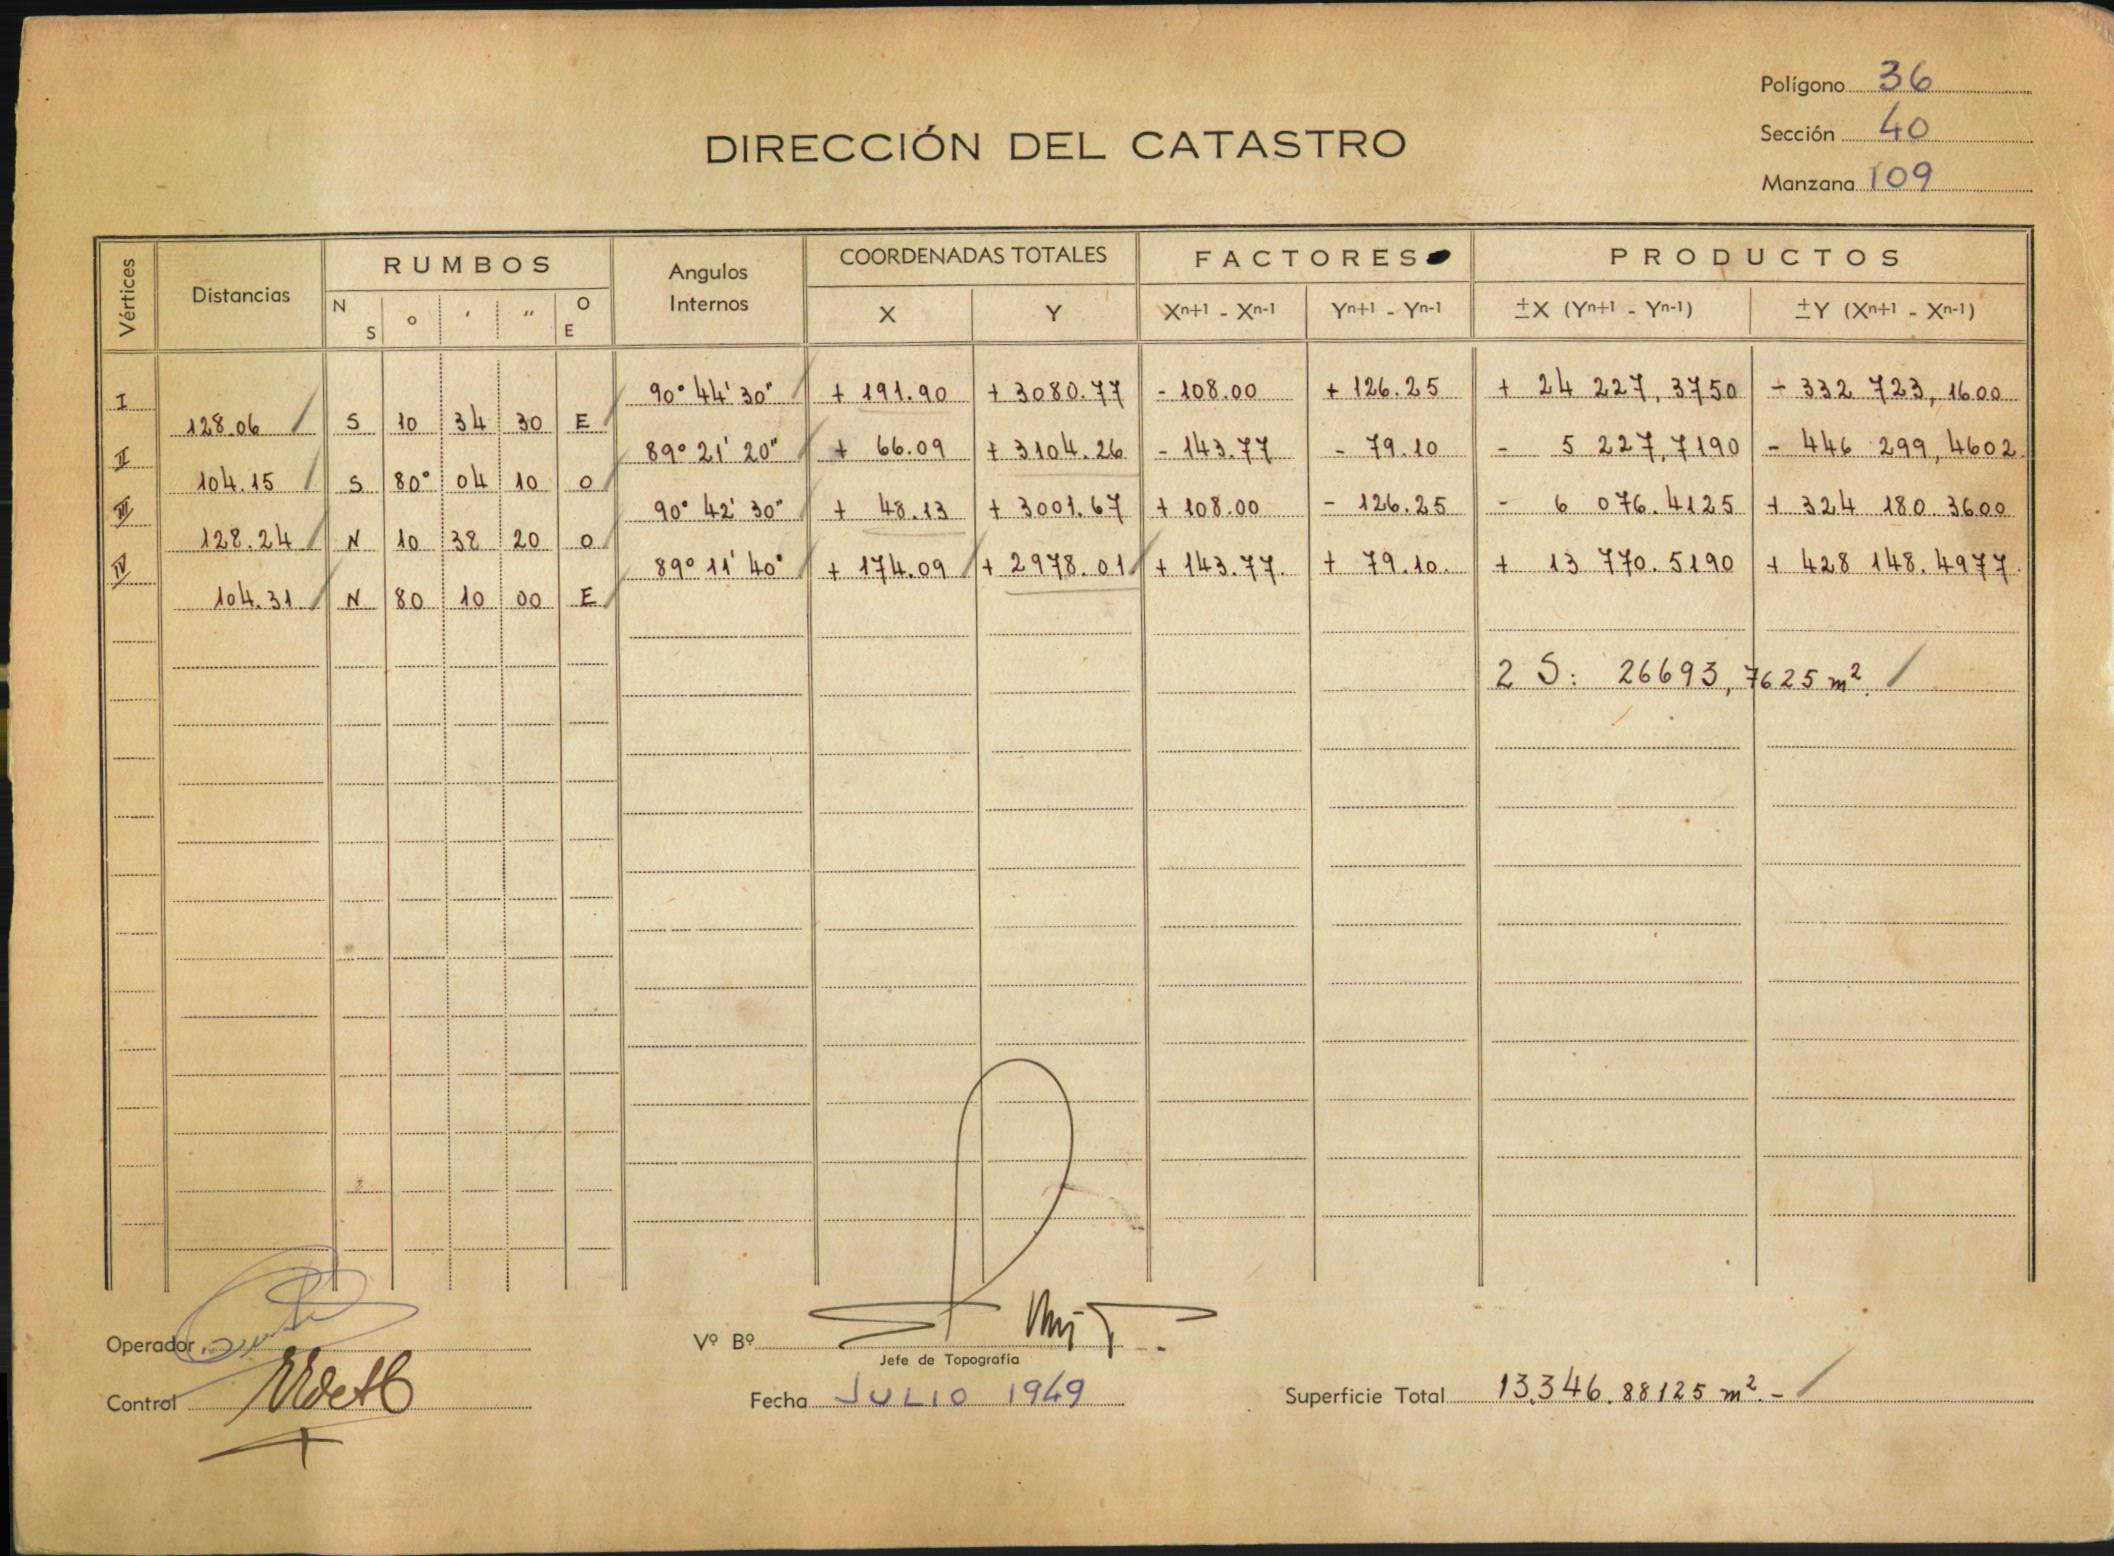 Polígono 36
Sección 40
Manzana 109
DIRECCIÓN DEL CATASTRO
Vértices Distancias RUMBOS Angulos Internos COORDENADAS TOTALES FACTORES PRODUCTOS
N S o ' '' O E X Y Xn+1 - Xn-1 Yn+1 - Yn-1 ±X (Yn+1 - Yn-1) ±Y (Xn+1 - Xn-1)
I 90° 44' 30" + 191.90 + 3080.77 - 108.00 + 126.25 + 24 227,3750 - 332 723,1600
128.06 S 10 34 30 E
II 89° 21' 20" + 66.09 + 3104.26 - 143.77 - 79.10 - 5 227,7190 - 446 299,4602
104.15 S 80° 04 10 O
III 90° 42' 30" + 48.13 + 3001.67 + 108.00 - 126.25 - 6 076.4125 + 324 180.3600
128.24 N 10 38 20 O
IV 89° 11' 40" + 174.09 + 2978.01 + 143.77 + 79.10 + 13 770.5190 + 428 148.4977
104.31 N 80 10 00 E
2 S: 26693,7625 m²
Operador
Vº Bº
Jefe de Topografía
Control
Fecha JULIO 1949
Superficie Total 13.346.88125 m².-